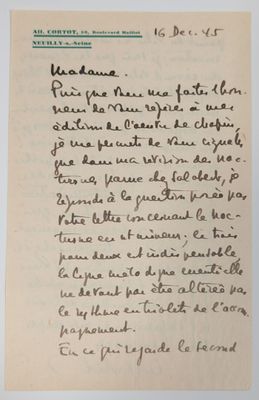 Alf. CORTOT, 58, Boulevard Maillot
NEUILLY-s.-Seine
16 Dec. 45
Madame.
Puisque vous me faites l'hon-
neur de vous référer à mes
édition de l'œuvre de Chopin,
je me permets de vous signaler
que dans ma révision de noc-
turnes, parue chez Salabert, je
réponds à la question posée par
votre lettre concernant le noc-
turne en ut mineur; le trois
pour deux est indispensable,
la ligne mélodique essentielle
ne devant pas être altérée par
le rythme en triolets de l'accom-
pagnement.
En ce qui regarde le second